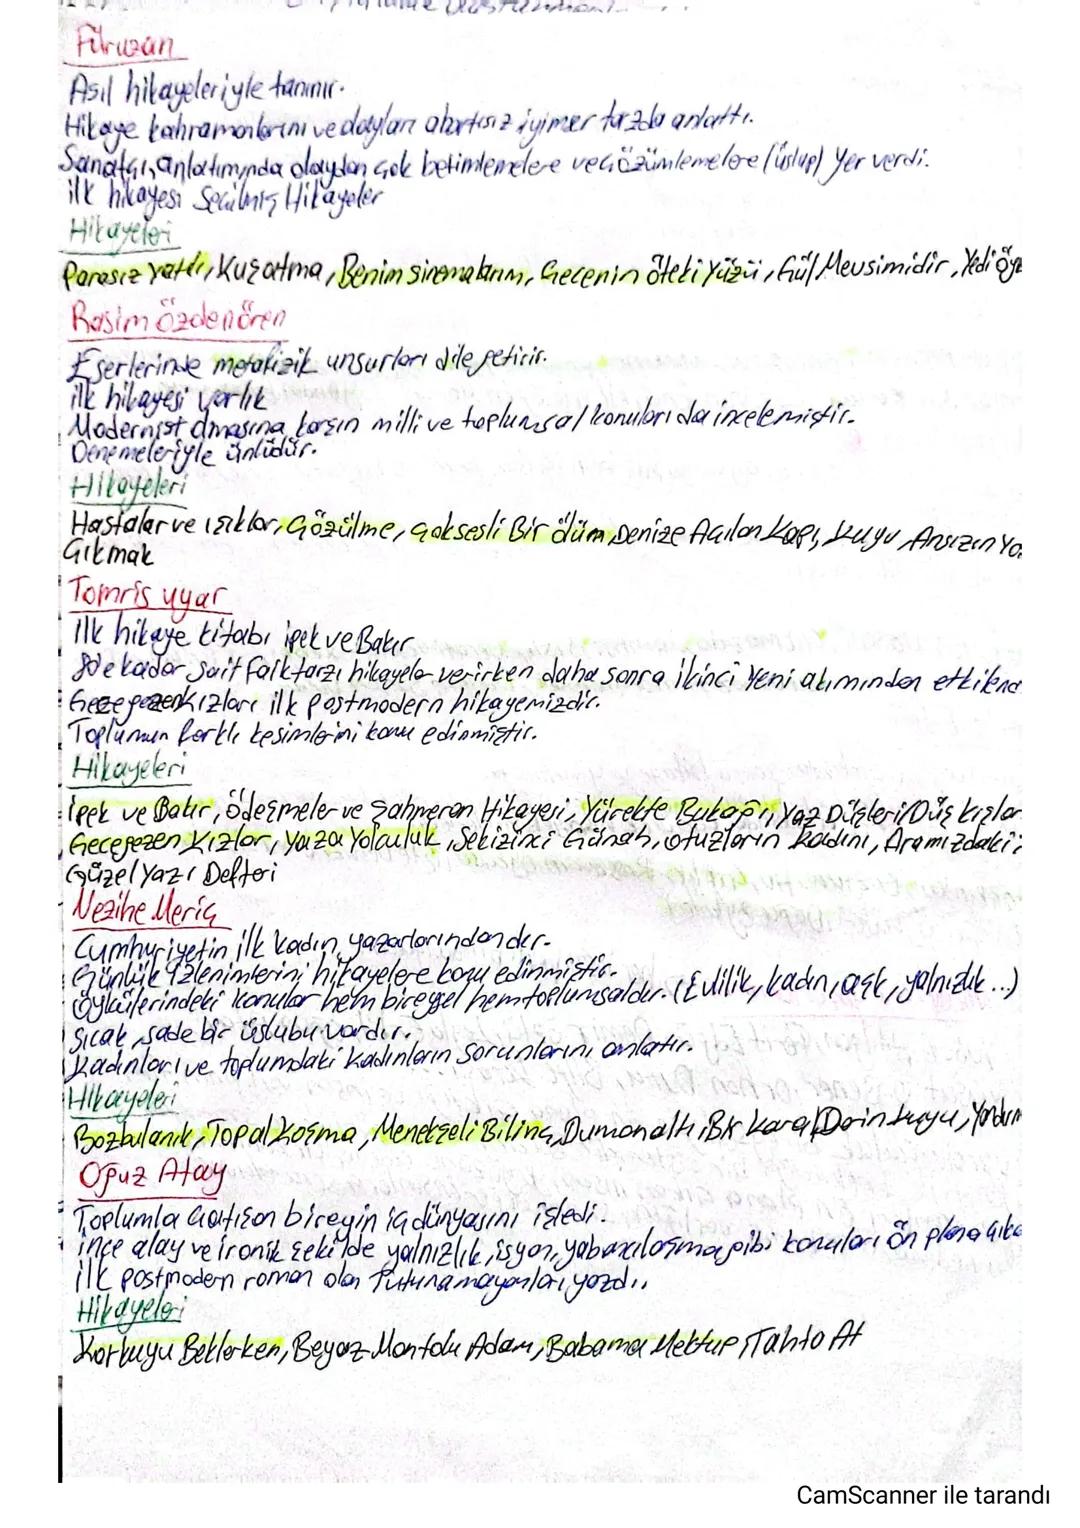 Füruzan
Asıl hikayeleriyle tanınır.
Hikaye kahramanlarını ve olayları abartısız iyimser tarzda anlattı.
Sanatçı, anlatımında olaydan çok betimlemelere ve çözümlemelere (üslup) yer verdi.
ilk hikayesi Seçilmiş Hikayeler
Hikayeleri
Parasız Yatılı, Kuşatma, Benim sinemalarım, Gecenin Öteki Yüzü, Gül Mevsimidir, Yedi Öyk
Rasim Özdenören
Eserlerinde metafizik unsurları dile getirir.
ilk hikayesi varlık
Modernist olmasına karşın milli ve toplumsal konuları da incelemiştir.
Denemeleriyle ünlüdür.
Hikayeleri
Hastalar ve ışıklar, Çözülme, Çok sesli Bir ölüm, Denize Açılan Kapı, Kuyu, Ansızın Yo
Çıkmak
Tomris uyar
İlk hikaye kitabı ipek ve Bakır
kadar Sait faik tarzı hikayeler verirken daha sonra ikinci Yeni akımından etkilend
Gecegezen Kızları ilk postmodern hikayemizdir.
Toplumun farklı kesimlerini konu edinmiştir.
Hikayeleri
İpek ve Bakır, ödeşmeler ve Şahmeran Hikayesi, Yürekte Bukağı, Yaz Düşleri/Düş kışlar
Gecegezen Kızlar, Yaza Yolculuk, Sekizinci Günah, Otuzların kadını, Aramızdaki
Güzel Yazı Defteri
Nezihe Meriç
Cumhuriyetin ilk kadın yazarlarındandır.
Günlük izlenimlerini hikayelere konu edinmiştir.
öykülerindeki konular hem bireysel hem toplumsaldır. (Evlilik, kadın, aşk, yalnızlık...)
Sıcak, sade bir üslubu vardır.
Kadınları ve toplumdaki kadınların sorunlarını anlatır.
Hikayeleri
Bozbulanık, Topal Koşma, Menekşeli Bilinç, Dumanaltı, Bir Kara Derin kuyu, Yandırm
Oğuz Atay
Toplumla çatışan bireyin iç dünyasını işledi.
ince alay ve ironik şekilde yalnızlık, isyan, yabancılaşma gibi konuları ön plana çıka
ilk postmodern roman olan Tutunamayanları yazdı..
Hikayeleri
Korkuyu Beklerken, Beyaz Mantolu Adam, Babama Mektup, Tahta At
CamScanner ile tarandı